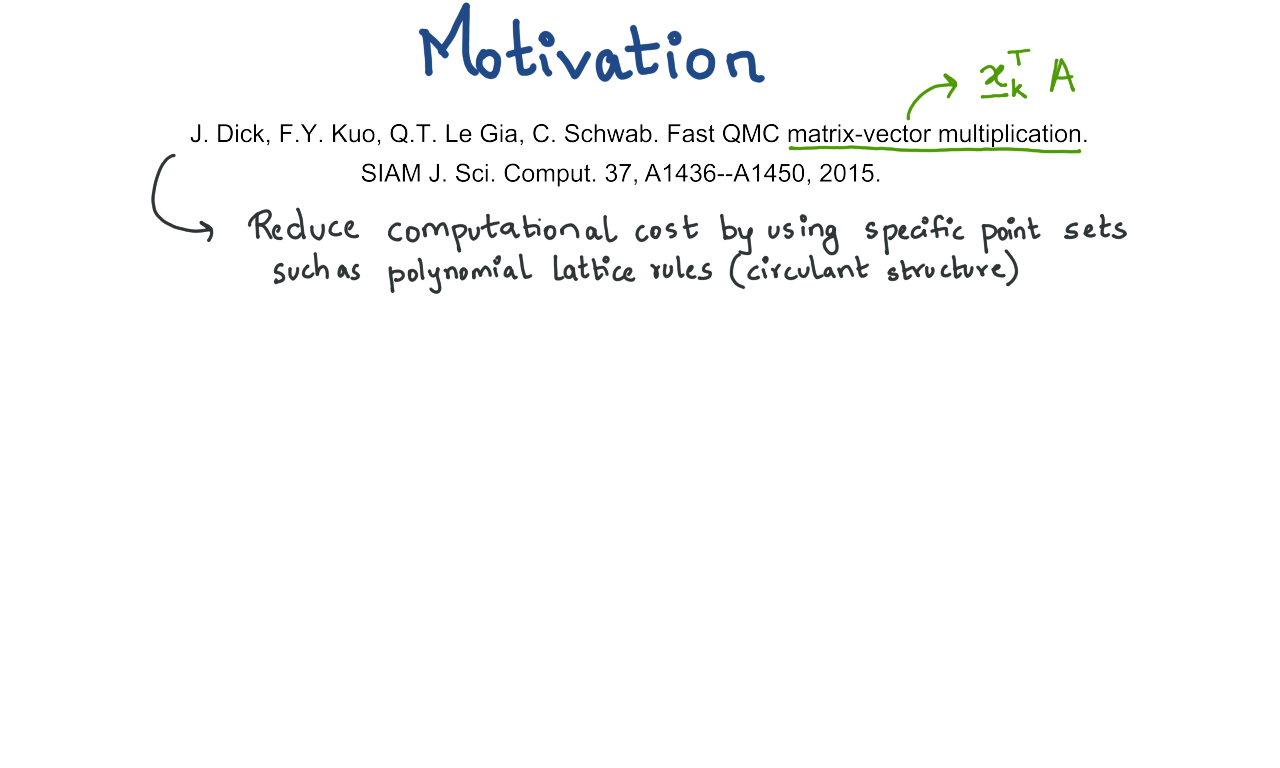 Motivation
x_k^T A
J. Dick, F.Y. Kuo, Q.T. Le Gia, C. Schwab. Fast QMC matrix-vector multiplication.
SIAM J. Sci. Comput. 37, A1436--A1450, 2015.
Reduce computational cost by using specific point sets
such as polynomial lattice rules (circulant structure)